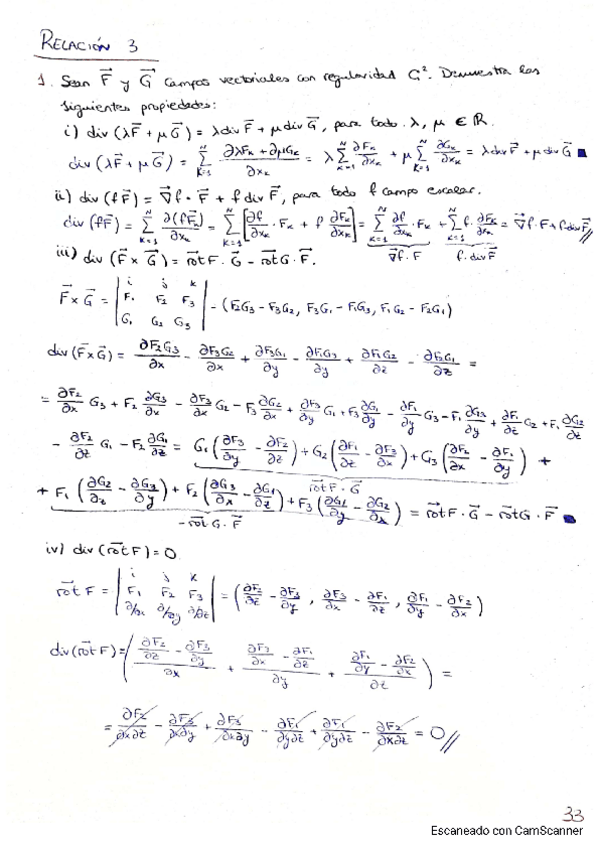 RELACIÓN 3
1. Sean F⃗ y G⃗ campos vectoriales con regularidad C². Demuestra las
siguientes propiedades:
i) div (λF⃗ + μG⃗) = λ div F⃗ + μ div G⃗, para todo λ, μ ∈ ℝ.
div (λF⃗ + μG⃗) = Σ_{k=1}^{N} (∂λF_k + ∂μG_k)/∂x_k = λ Σ_{k=1}^{N} ∂F_k/∂x_k + μ Σ_{k=1}^{N} ∂G_k/∂x_k = λ div F⃗ + μ div G⃗ ■
ii) div (f F⃗) = ∇⃗f · F⃗ + f div F⃗, para todo f campo escalar.
div (f F⃗) = Σ_{k=1}^{N} ∂(f F_k)/∂x_k = Σ_{k=1}^{N} [∂f/∂x_k · F_k + f ∂F_k/∂x_k] = Σ_{k=1}^{N} ∂f/∂x_k · F_k + Σ_{k=1}^{N} f · ∂F_k/∂x_k = ∇⃗f · F + f div F⃗ //
∇⃗f · F f · div F⃗
iii) div (F⃗ × G⃗) = rot⃗ F · G⃗ − rot⃗ G · F⃗.
F⃗ × G⃗ = | i j k ; F₁ F₂ F₃ ; G₁ G₂ G₃ | = (F₂G₃ − F₃G₂, F₃G₁ − F₁G₃, F₁G₂ − F₂G₁)
div (F⃗ × G⃗) = ∂F₂G₃/∂x − ∂F₃G₂/∂x + ∂F₃G₁/∂y − ∂F₁G₃/∂y + ∂F₁G₂/∂z − ∂F₂G₁/∂z =
= ∂F₂/∂x G₃ + F₂ ∂G₃/∂x − ∂F₃/∂x G₂ − F₃ ∂G₂/∂x + ∂F₃/∂y G₁ + F₃ ∂G₁/∂y − ∂F₁/∂y G₃ − F₁ ∂G₃/∂y + ∂F₁/∂z G₂ + F₁ ∂G₂/∂z
− ∂F₂/∂z G₁ − F₂ ∂G₁/∂z = G₁(∂F₃/∂y − ∂F₂/∂z) + G₂(∂F₁/∂z − ∂F₃/∂x) + G₃(∂F₂/∂x − ∂F₁/∂y) +
rot⃗ F · G⃗
+ F₁(∂G₂/∂z − ∂G₃/∂y) + F₂(∂G₃/∂x − ∂G₁/∂z) + F₃(∂G₁/∂y − ∂G₂/∂x) = rot⃗ F · G⃗ − rot⃗ G · F⃗ ■
− rot⃗ G · F⃗
iv) div (rot⃗ F) = 0.
rot⃗ F = | i j k ; F₁ F₂ F₃ ; ∂/∂x ∂/∂y ∂/∂z | = (∂F₂/∂z − ∂F₃/∂y, ∂F₃/∂x − ∂F₁/∂z, ∂F₁/∂y − ∂F₂/∂x)
div (rot⃗ F) = ( (∂F₂/∂z − ∂F₃/∂y)/∂x + (∂F₃/∂x − ∂F₁/∂z)/∂y + (∂F₁/∂y − ∂F₂/∂x)/∂z ) =
= ∂F₂/∂x∂z − ∂F₃/∂x∂y + ∂F₃/∂x∂y − ∂F₁/∂y∂z + ∂F₁/∂y∂z − ∂F₂/∂x∂z = 0 //
33
Escaneado con CamScanner